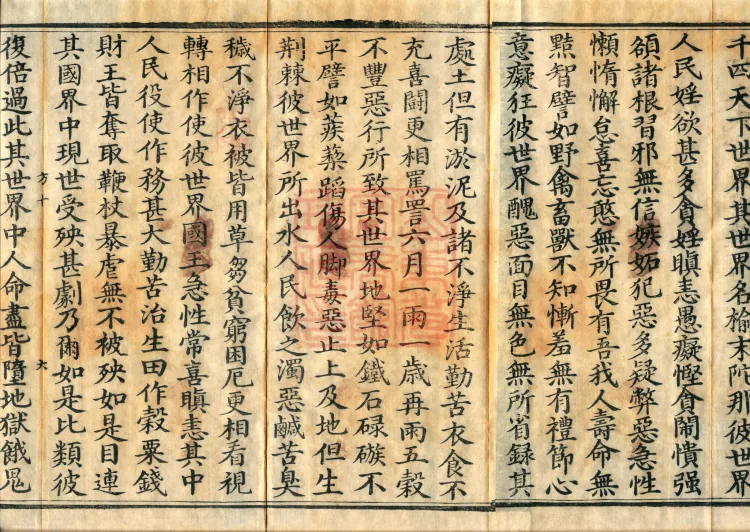 千四天下世界名榆末陀那彼世界
人民婬欲甚多貪婬瞋恚愚癡慳貪鬧憒强
頟諸根習邪無信嫉妬犯惡多疑弊惡急性
懶惰懈怠喜忘憨無所畏有吾我人壽命無
黠智譬如野禽畜獸不知慚羞無有禮節心
意癡狂彼世界醜惡面目無色無所省録其
處土但有淤泥及諸不淨生活勤苦衣食不
充喜鬪更相罵詈六月一雨一歲再雨五穀
不豐惡行所致其世界地堅如鐵石碌磙不
平譬如蒺蔾蹈傷人脚毒惡止上及地但生
荆棘彼世界所出水人民飲之濁惡鹹苦臭
穢不淨衣被皆用草芻貧窮困厄更相看視
轉相作使彼世界國王急性常喜瞋恚其中
人民役使作務甚大勤苦治生田作穀粟錢
財王皆奪取鞭杖暴虐無不被殃如是目連
其國界中現世受殃甚劇乃爾如是比類彼
方十 六
復倍過此其世界中人命盡皆墮地獄餓鬼